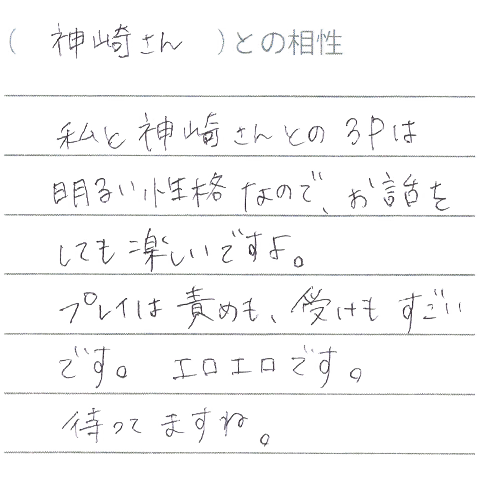 ( 神崎さん )との相性
私と神崎さんとの3Pは
明るい性格なので、お話を
しても楽しいですよ。
プレイは責めも、受けもすごい
です。エロエロです。
待ってますね。